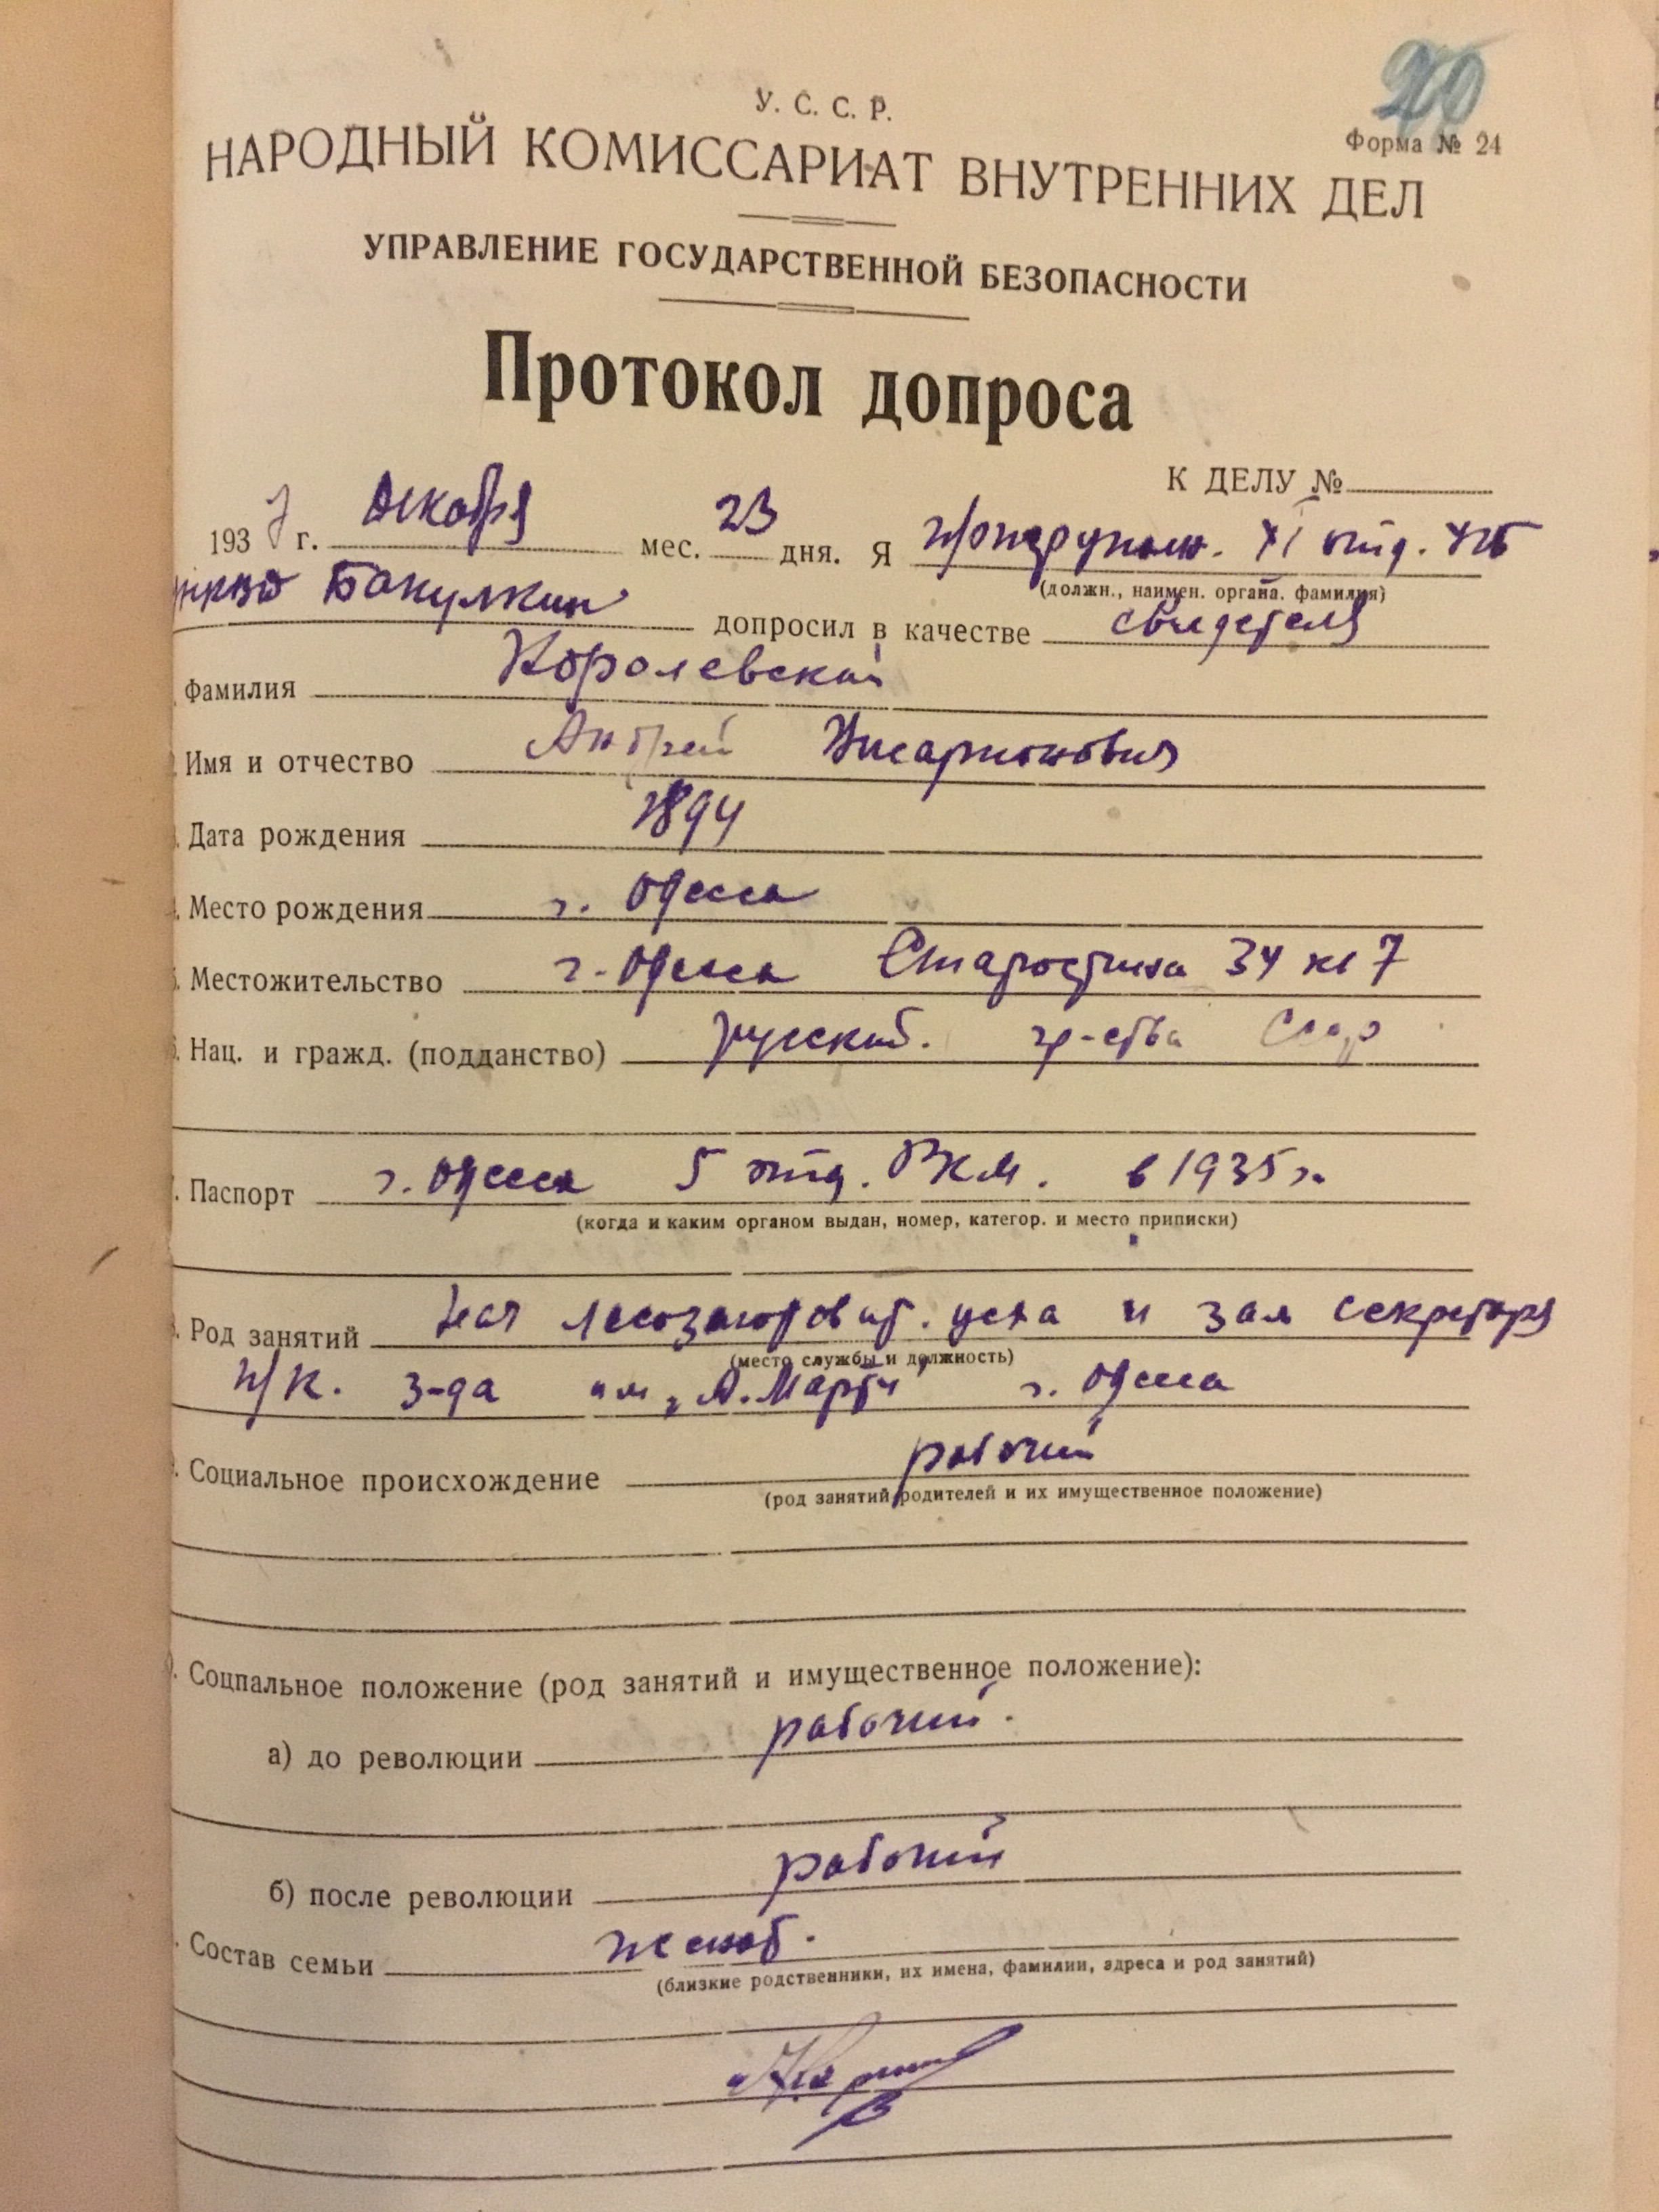 20
У. С. С. Р.
Форма № 24
НАРОДНЫЙ КОМИССАРИАТ ВНУТРЕННИХ ДЕЛ
УПРАВЛЕНИЕ ГОСУДАРСТВЕННОЙ БЕЗОПАСНОСТИ
Протокол допроса
К ДЕЛУ №
1937 г. декабря мес. 23 дня. Я XI отд. УГБ
(должн., наимен. органа, фамилия)
Бакулкин допросил в качестве свидетеля
Фамилия Королевский
Имя и отчество Андрей
Дата рождения 1894
Место рождения г. Одесса
Местожительство г. Одесса 34 кв 7
Нац. и гражд. (подданство) русский. гр-ства СССР
Паспорт г. Одесса 5 отд. РКМ. в 1935 г.
(когда и каким органом выдан, номер, категор. и место приписки)
Род занятий Нач лесозаготовит. цеха и зам секретаря
(место службы и должность)
п/к. з-да им „А. Марти" г. Одесса
Социальное происхождение рабочий
(род занятий родителей и их имущественное положение)
Соцпальное положение (род занятий и имущественное положение):
а) до революции рабочий.
б) после революции рабочий
Состав семьи
(близкие родственники, их имена, фамилии, адреса и род занятий)